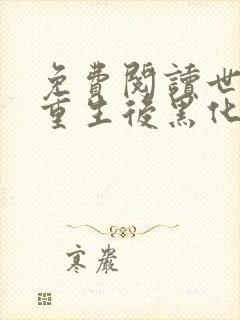 免費閱讀世
重生後黑化
寒巖